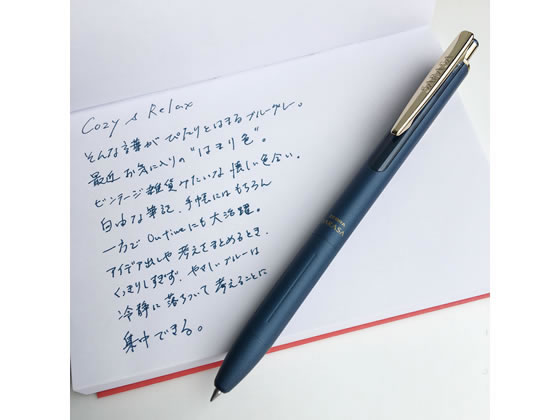 Cozy & Relax
そんな言葉がぴたりとはまるブルーグレー。
最近お気に入りの"はまり色"。
ビンテージ雑貨みたいな懐しい色合い。
自由な筆記、手帳にはもちろん
一方でOn timeにも大活躍。
アイデア出しや考えをまとめるとき、
くっきりしすぎず、やさしいブルーは
冷静に落ちついて考えることに
集中できる。
SARASA
ZEBRA
SARASA